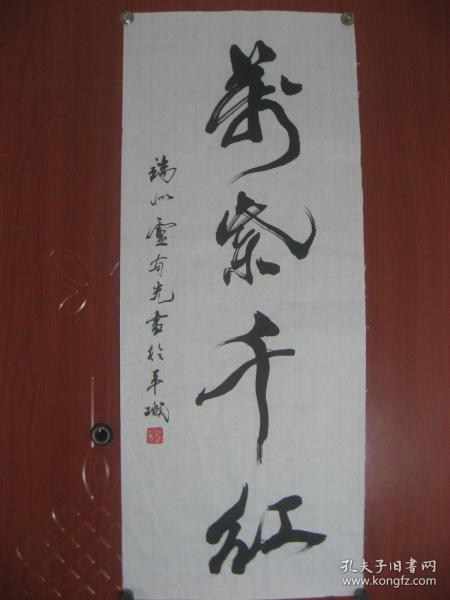 萬紫千红
瑞州盧有光書於羊城
孔夫子旧书网
www.kongfz.com